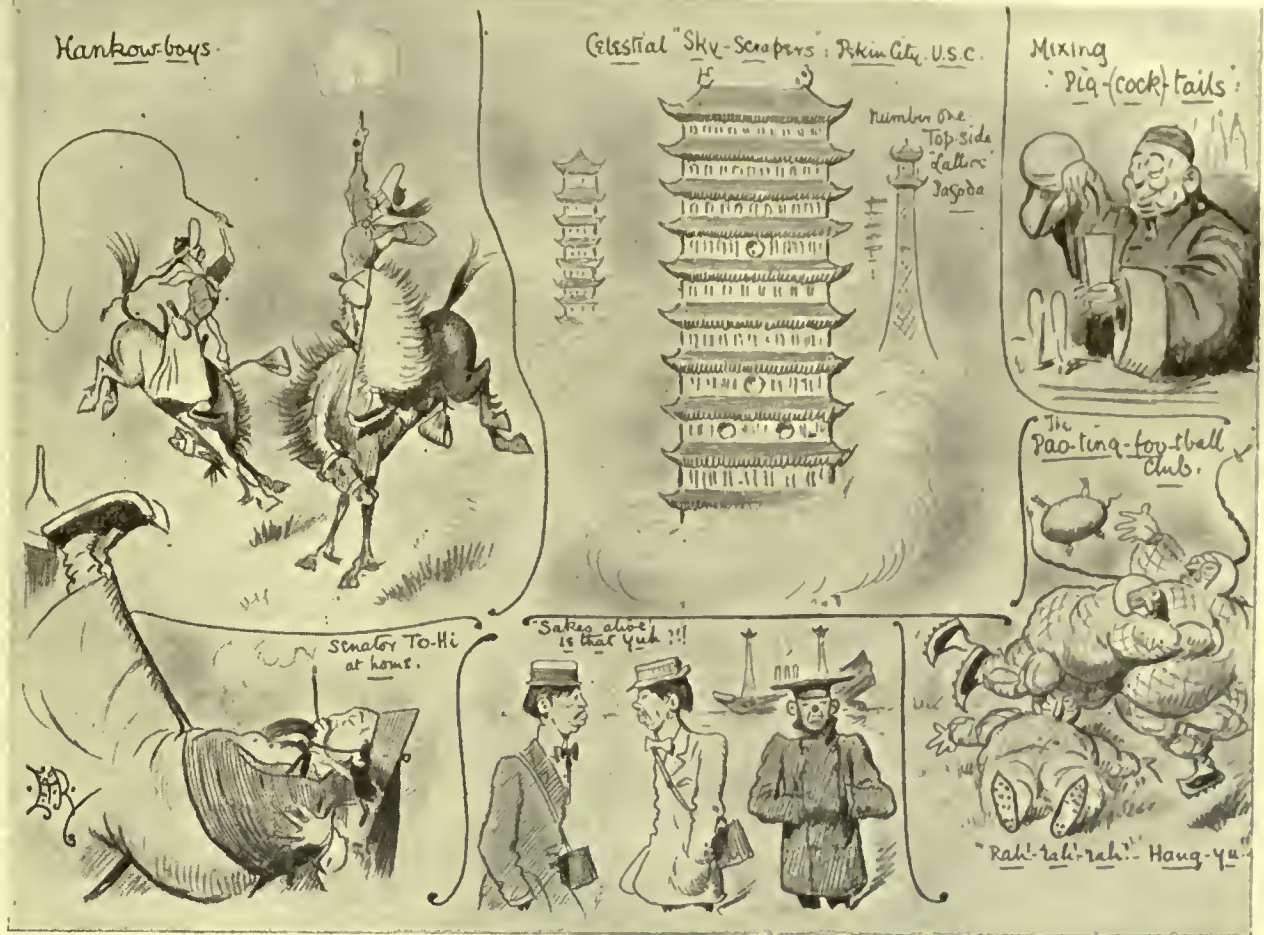 Hankow-boys.
Celestial "Sky-Scrapers": Pekin City. U.S.C.
Number one
Top-side
"Lattice"
Pagoda
Mixing
"Pig-(cock)-tails".
The
Pao-ting-foo-tball
Club.
Senator To-Hi
at home.
"Sakes alive!
is that Yuh?!!!
"Rah!-rah!-rah!"- Hang-yu"